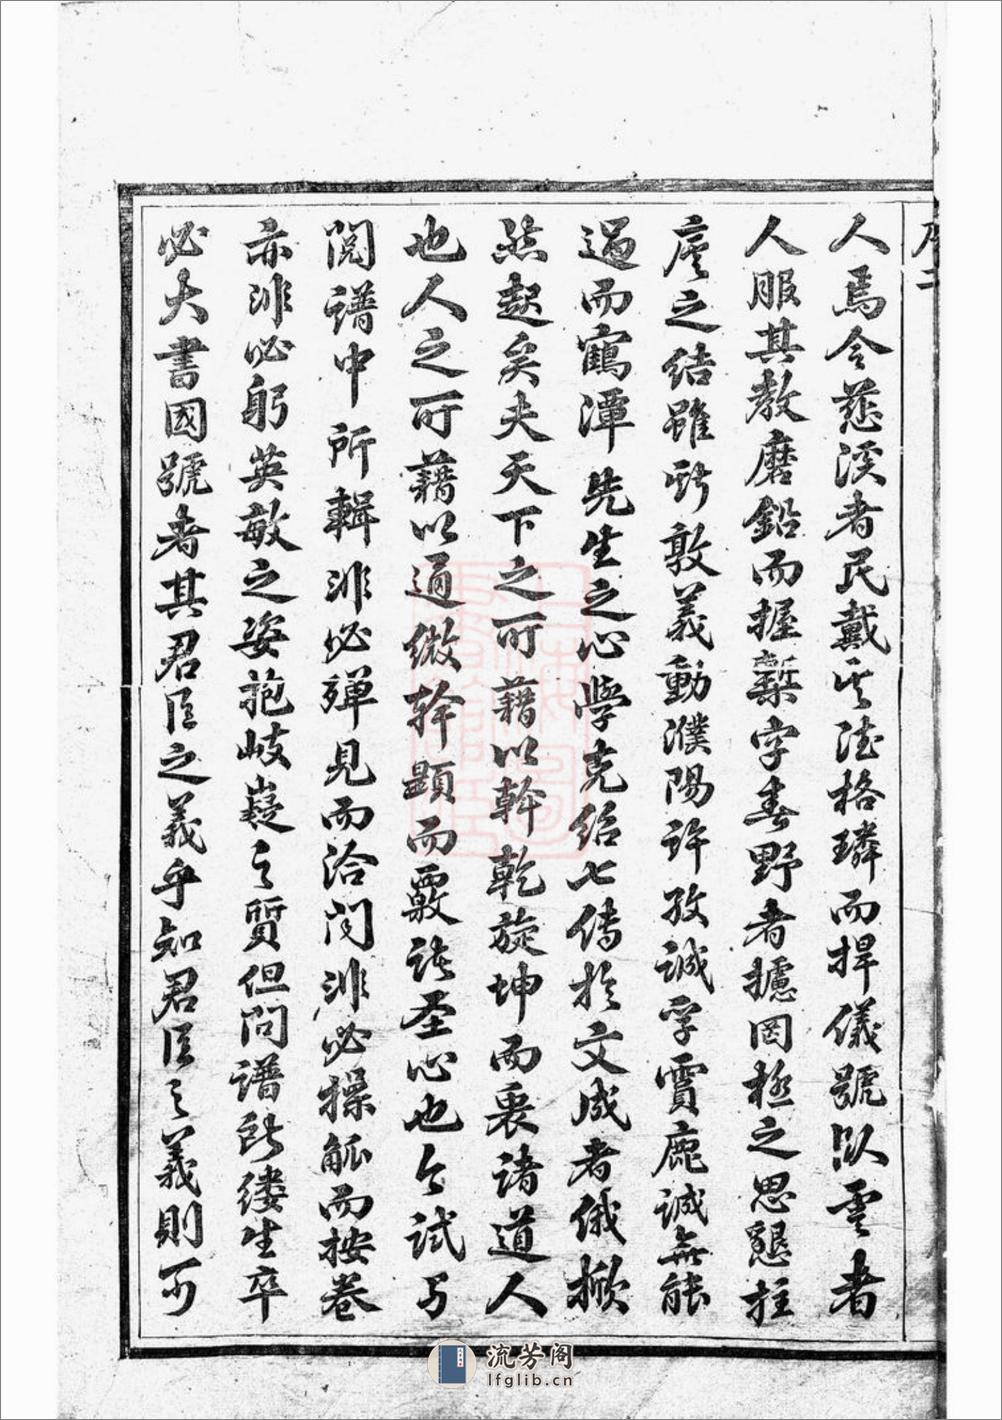 序二
人焉令慈溪者民戴其德格璘而捍儀號臥雲者
人服其教磨鉛而握槧字春野者攄罔極之思懇拄
序之結雖所敦義動濮陽許孜誠孚賓鹿誠無能
過而鶴潭先生之心學克紹七傳於文成者俄掀
然起矣夫天下之可藉以幹乾旋坤而裹諸道人
也人之可藉以通微幹顯而覈諸圣心也今試与
閱譜中所輯非必殫見而洽聞非必操觚而按卷
亦非必躬英敏之姿抱岐嶷之質但問譜所縷生卒
必大書國號者其君臣之義乎知君臣之義則可
流芳阁
lfglib.cn